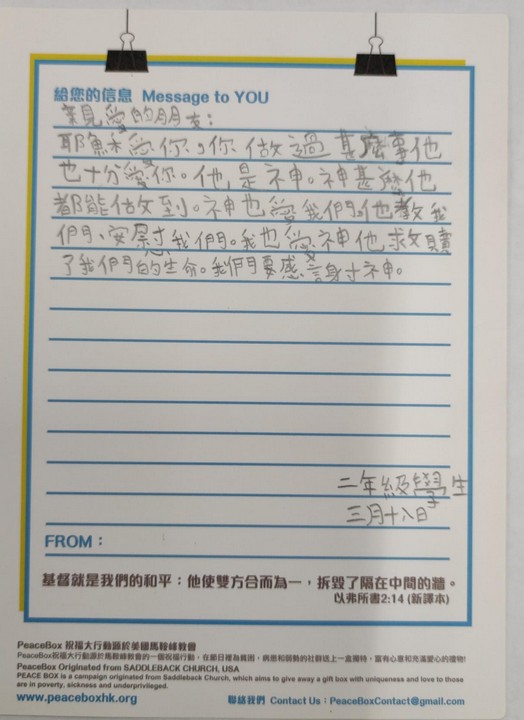 給您的信息 Message to YOU
親愛的朋友：
耶穌愛你，你做過甚麼事他
也十分愛你。他是神。神甚麼他
都能做到。神也愛我們。他教我
們、安慰我們。我也愛神他救贖
了我們的生命。我們要感謝神。
二年級學生
三月十八日
FROM：
基督就是我們的和平：他使雙方合而為一，拆毀了隔在中間的牆。
以弗所書2:14 (新譯本)
PeaceBox 祝福大行動源於美國馬鞍峰教會
PeaceBox祝福大行動源於馬鞍峰教會的一個祝福行動，在節日裡為貧困，病患和弱勢的社群送上一盒獨特，富有心意和充滿愛心的禮物!
PeaceBox Originated from SADDLEBACK CHURCH, USA
PEACE BOX is a campaign originated from Saddleback Church, which aims to give away a gift box with uniqueness and love to those
are in poverty, sickness and underprivileged.
www.peaceboxhk.org 聯絡我們 Contact Us : PeaceBoxContact@gmail.com